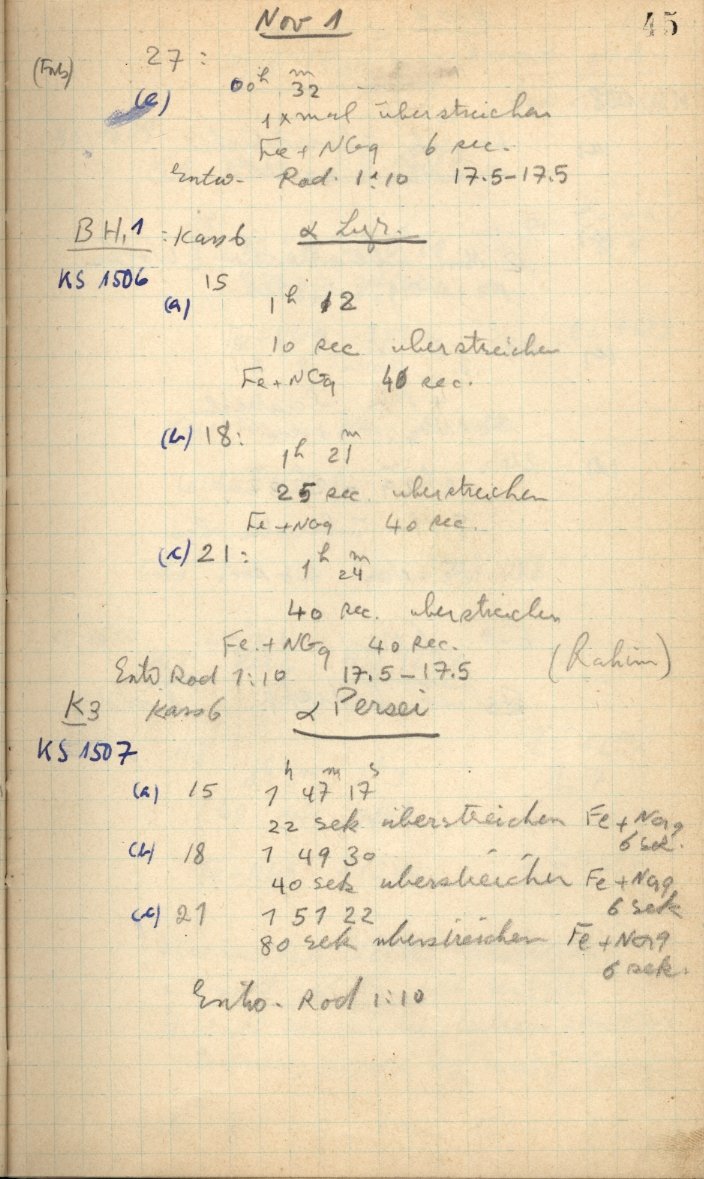 Nov 1
45
27:
(e)
00h m 32
1 x mal überstreichen
Fe + NGg 6 sec.
Entw- Rod. 1:10 17.5-17.5
BH,1 : Kass 6 α Lyr.
KS 1506
15
(a) 1h 12
10 sec uberstreichen
Fe+NGg 40 sec.
(b) 18: 1h 21m
25 sec. uberstreichen
Fe+NGg 40 sec.
(c) 21: 1h 24m
40 sec. uberstreichen
Fe.+NGg 40 sec.
(Rahim)
Entw Rod 1:10 17.5-17.5
K3 Kass 6 α Persei
KS 1507
(a) 15 1h 47m 17s
22 sek überstreichen Fe+NGg
6 sek.
(b) 18 1 49 30
40 sek uberstreichen Fe+NGg
6 sek
(c) 21 1 51 22
80 sek uberstreichen Fe+NGg
6 sek.
Entw- Rod 1:10